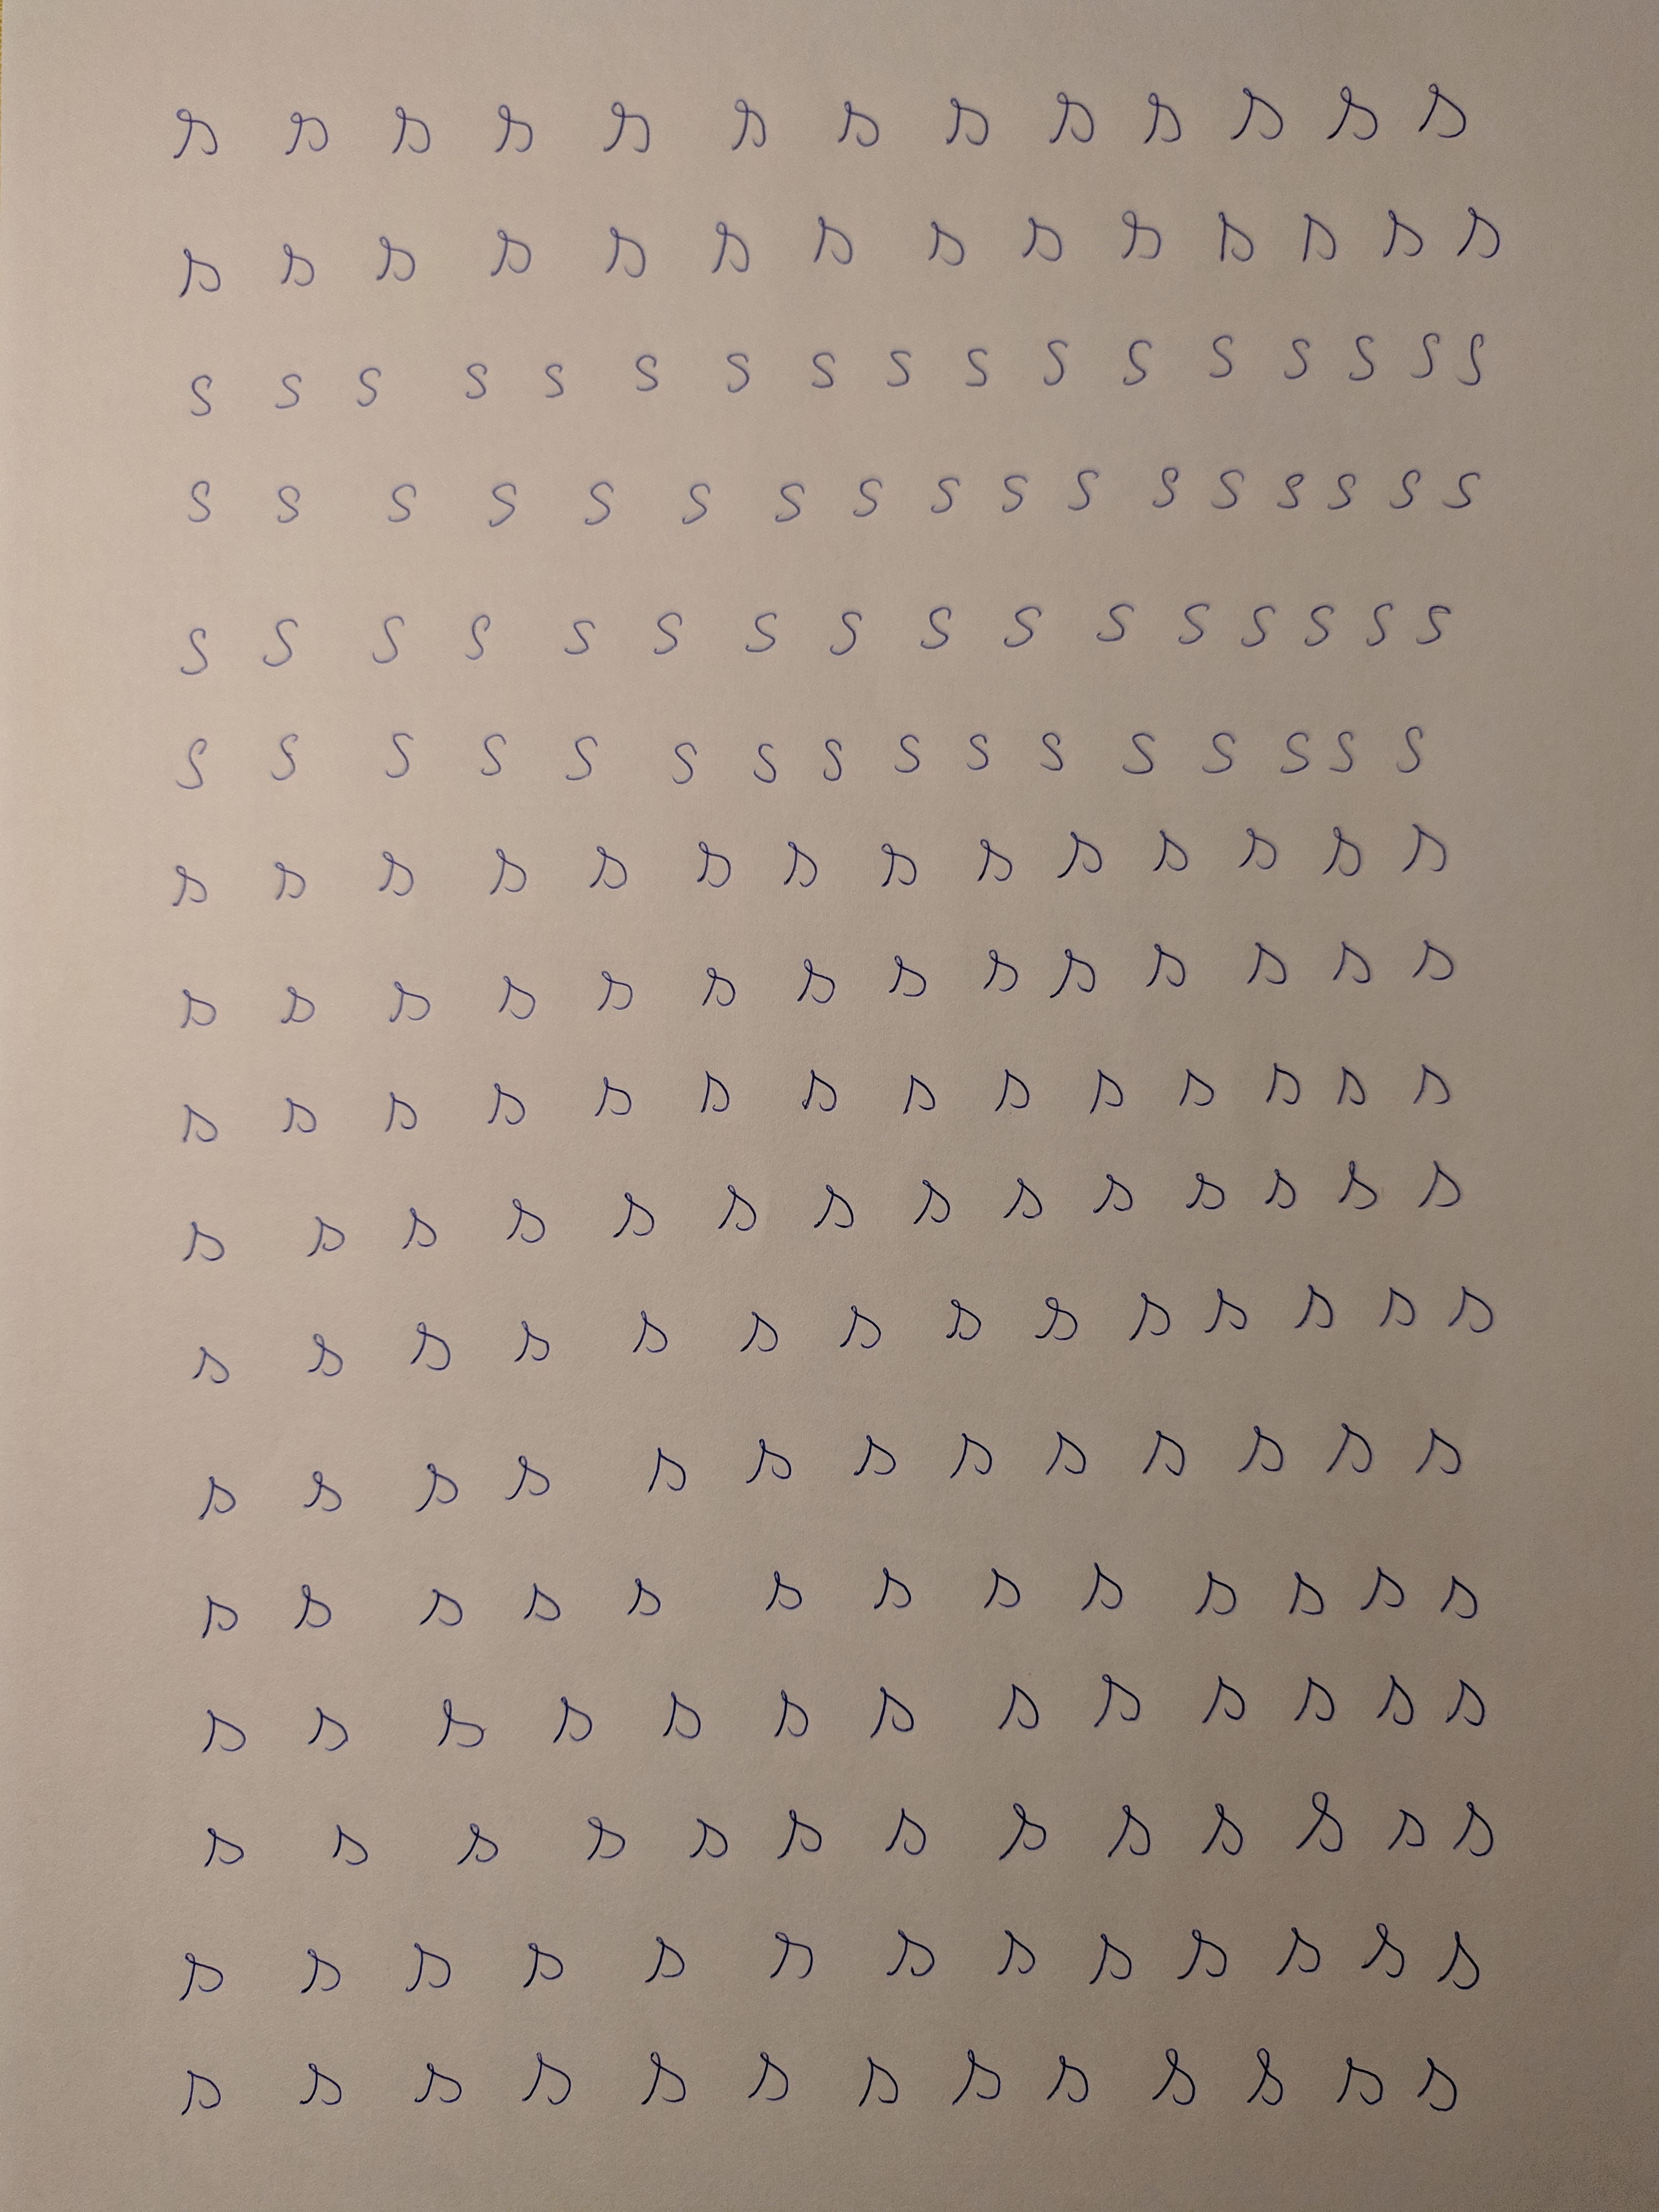 s s s s s s s s s s s s s
s s s s s s s s s s s s s s
s s s s s s s s s s s s s s s s s
s s s s s s s s s s s s s s s s s
s s s s s s s s s s s s s s s s
s s s s s s s s s s s s s s s s
s s s s s s s s s s s s s s
s s s s s s s s s s s s s s
s s s s s s s s s s s s s s
s s s s s s s s s s s s s s
s s s s s s s s s s s s s s
s s s s s s s s s s s s s
s s s s s s s s s s s s s
s s s s s s s s s s s s s
s s s s s s s s s s s s s
s s s s s s s s s s s s s
s s s s s s s s s s s s s